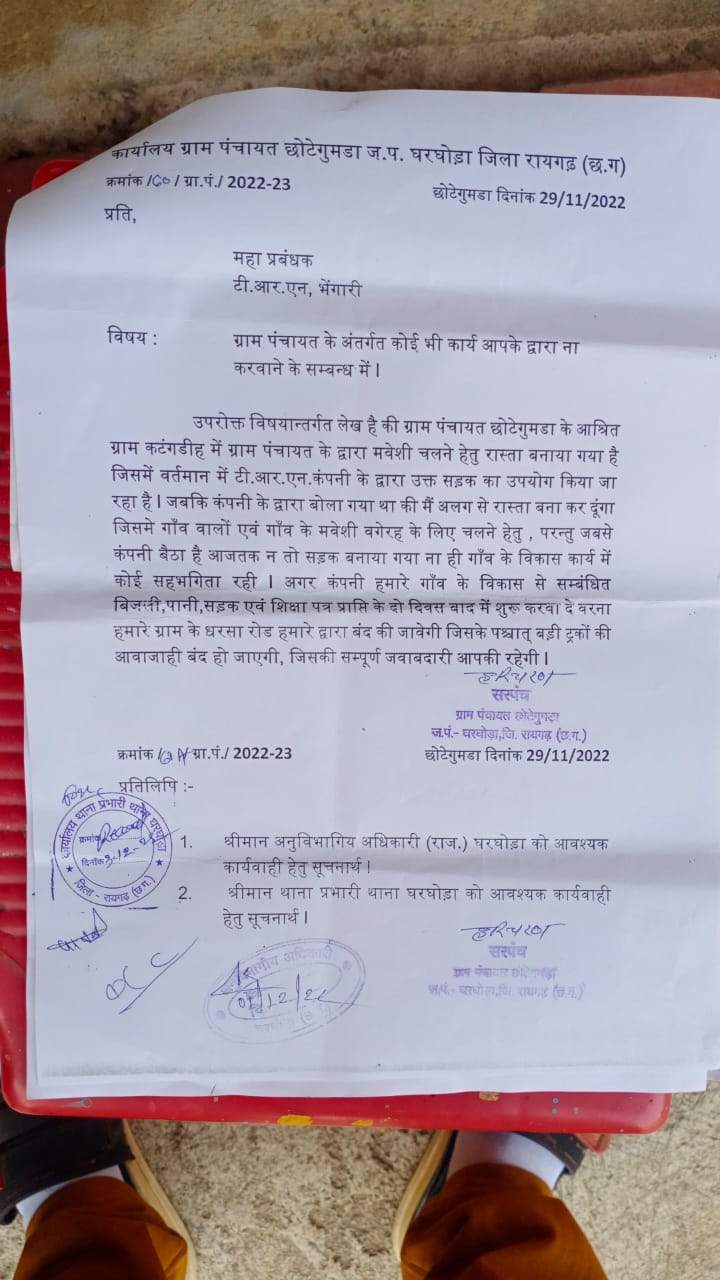 कार्यालय ग्राम पंचायत छोटेगुमडा ज.प. घरघोड़ा जिला रायगढ़ (छ.ग)
क्रमांक /60/ ग्रा.पं./ 2022-23
छोटेगुमडा दिनांक 29/11/2022
प्रति,
महा प्रबंधक
टी.आर.एन, भेंगारी
विषय :
ग्राम पंचायत के अंतर्गत कोई भी कार्य आपके द्वारा ना
करवाने के सम्बन्ध में।
उपरोक्त विषयान्तर्गत लेख है की ग्राम पंचायत छोटेगुमडा के आश्रित
ग्राम कटंगडीह में ग्राम पंचायत के द्वारा मवेशी चलने हेतु रास्ता बनाया गया है
जिसमें वर्तमान में टी.आर.एन.कंपनी के द्वारा उक्त सड़क का उपयोग किया जा
रहा है। जबकि कंपनी के द्वारा बोला गया था की मैं अलग से रास्ता बना कर दूंगा
जिसमे गाँव वालों एवं गाँव के मवेशी वगेरह के लिए चलने हेतु , परन्तु जबसे
कंपनी बैठा है आजतक न तो सड़क बनाया गया ना ही गाँव के विकास कार्य में
कोई सहभगिता रही । अगर कंपनी हमारे गाँव के विकास से सम्बंधित
बिजली,पानी,सड़क एवं शिक्षा पत्र प्राप्ति के दो दिवस बाद में शुरू करवा दे वरना
हमारे ग्राम के धरसा रोड हमारे द्वारा बंद की जावेगी जिसके पश्चात् बड़ी ट्रकों की
आवाजाही बंद हो जाएगी, जिसकी सम्पूर्ण जवाबदारी आपकी रहेगी।
सरपंच
ग्राम पंचायत छोटेगुमड़ा
ज.पं.- घरघोड़ा,जि. रायगढ़ (छ.ग.)
क्रमांक / ग्रा.पं./ 2022-23
छोटेगुमडा दिनांक 29/11/2022
प्रतिलिपि :-
कार्यालय थाना प्रभारी थाना घरघोड़ा
क्रमांक
दिनांक 3-12-
जिला - रायगढ़ (छ.ग.)
1. श्रीमान अनुविभागिय अधिकारी (राज.) घरघोड़ा को आवश्यक
कार्यवाही हेतु सूचनार्थ।
2. श्रीमान थाना प्रभारी थाना घरघोड़ा को आवश्यक कार्यवाही
हेतु सूचनार्थ।
सरपंच
ग्राम पंचायत छोटेगुमड़ा
ज.पं.- घरघोड़ा,जि. रायगढ़ (छ.ग.)